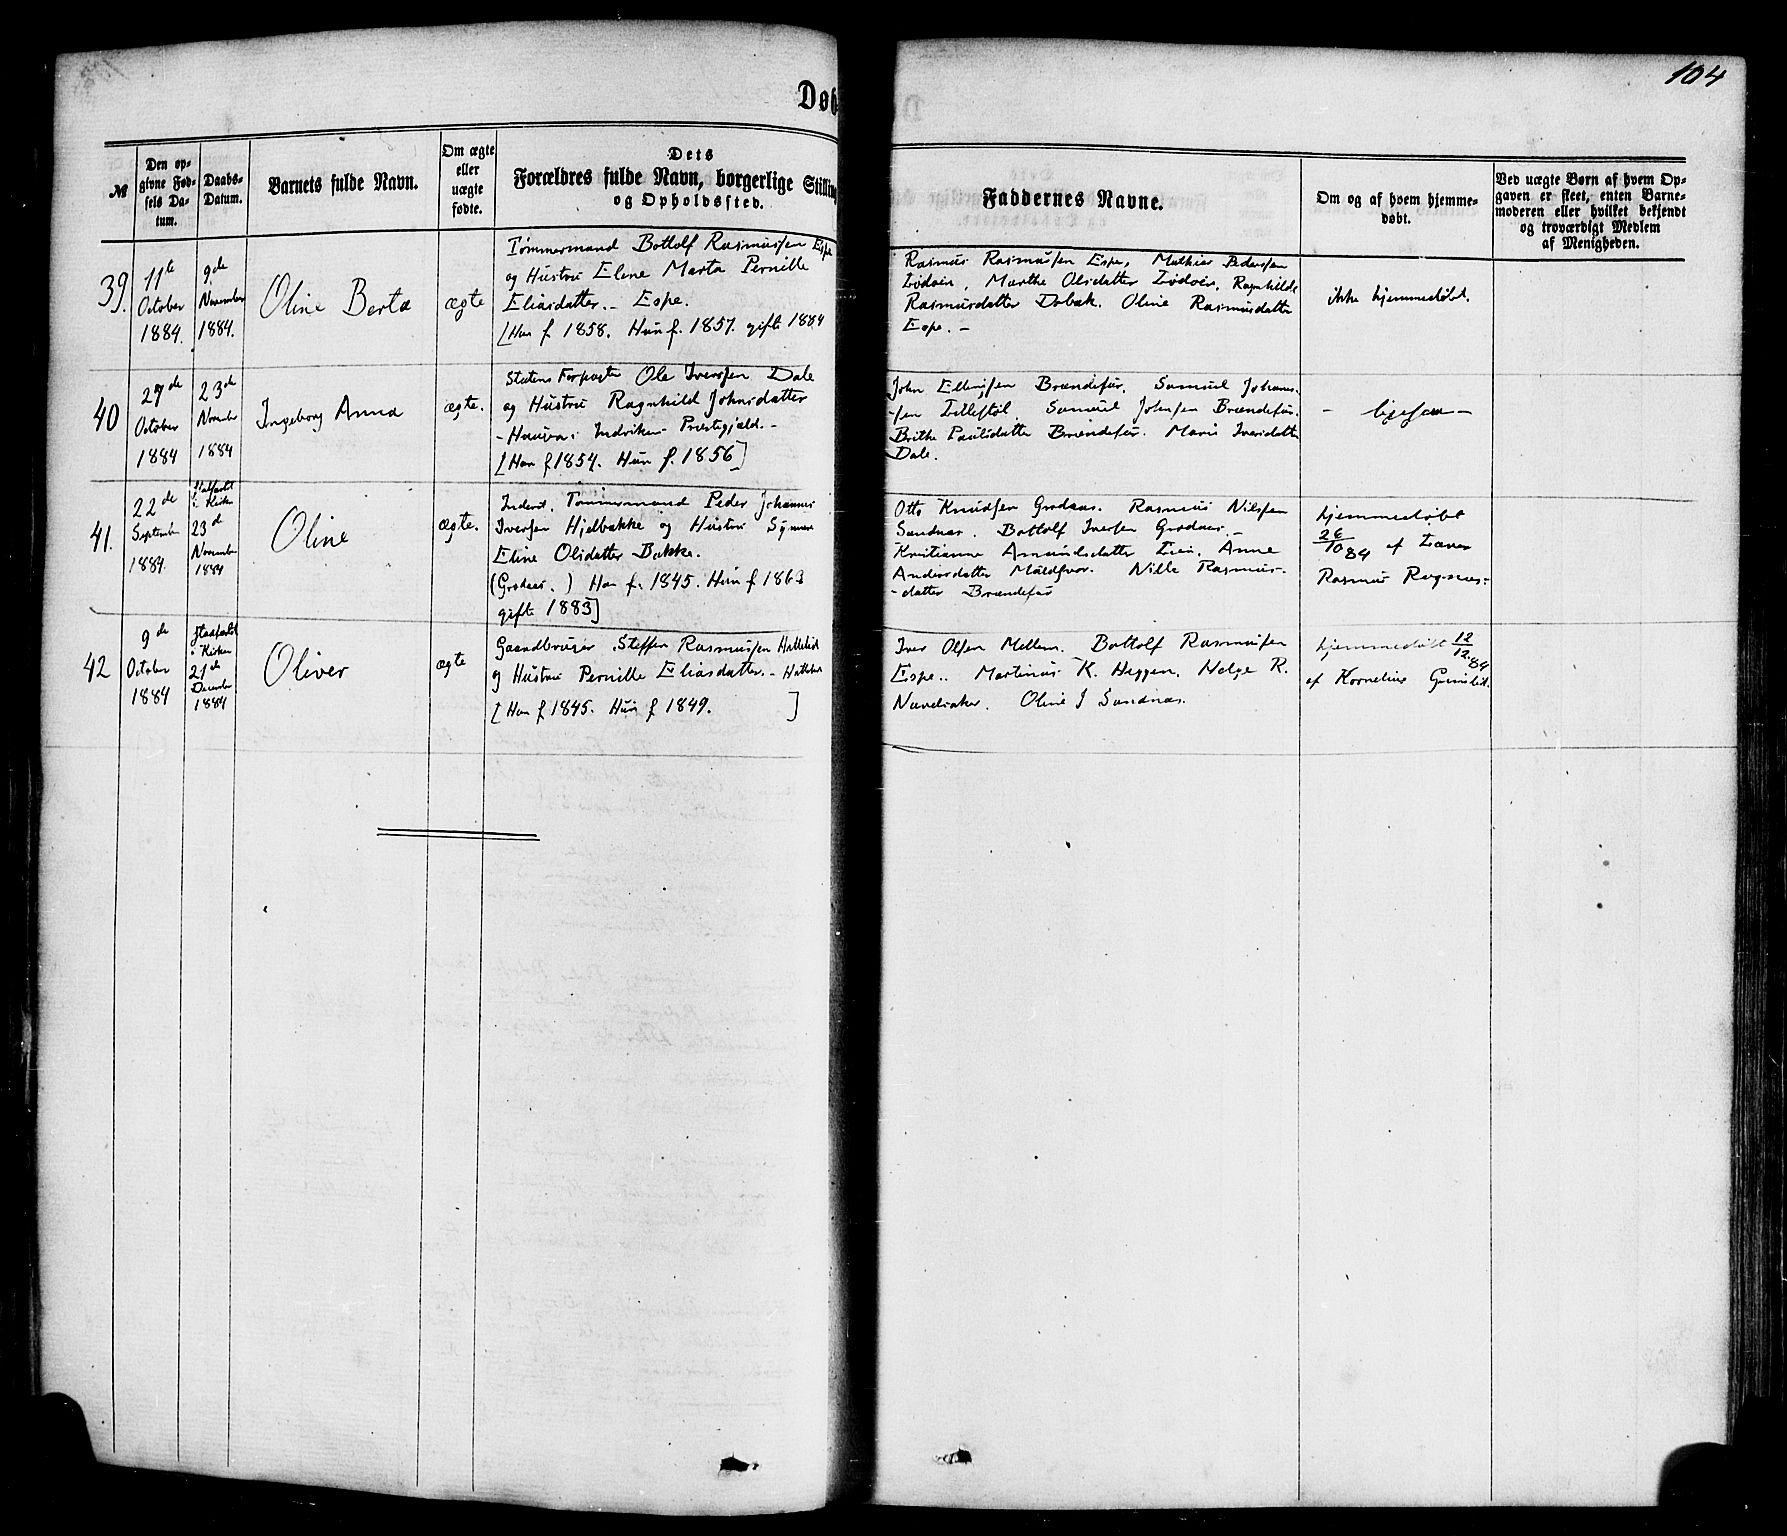 104
Døb
№
Den op-
givne Fød-
sels Da-
tum.
Daabs-
Datum.
Barnets fulde Navn.
Om ægte
eller
uægte
fødte.
Dets
Forældres fulde Navn, borgerlige Stilling
og Opholdssted.
Faddernes Navne.
Om og af hvem hjemme-
døbt.
Ved uægte Børn af hvem Op-
gaven er skeet, enten Barne-
moderen eller hvilket bekjendt
og troværdigt Medlem
af Menigheden.
39.
11te
October
1884.
9de
November
1884.
Oline Berta
ægte
Tømmermand Bottolf Rasmussen Espe
og Hustru Eline Marta Pernille
Eliasdatter. - Espe.
[Han f. 1858. Hun f. 1857. gift 1884
Rasmus Rasmussen Espe, Mathias Pedersen
Marthe Olsdatter Ragnhilde
Rasmusdatter Oline Rasmusdatter
Espe. -
ikke hjemmedøbt.
40
27de
October
1884
23de
Novembr
1884
Ingeborg Anna
ægte.
Statens Forpagter Ole Iversen Dale
og Hustru Ragnhild Johnsdatter
Indviken Præstegjæld. -
[Han f 1854. Hun f. 1856]
John Ellingsen Brændefur. Samuel Johanes-
-sen Samuel Johnsen Brændefur.
Brithe Paulsdatter Brændefur. Maris Iversdatter
Dale.
- ligesaa -
41.
22de
September
1884.
Stadfæstet
i Kirken
23de
November
1884
Oline
ægte.
Inderst. Tømmermand Peder Johannes
Iversen Hjelbakke og Hustru Synneve
Eline Olsdatter Bakke.
(Grodaas.) Han f. 1845. Hun f 1863
gift 1883]
Otto Knudsen Grodaas. Rasmus Nilsen
Sandnæs. Bottolf Iversen Grodaas. -
Kristianne Amundsdatter Anne
Andersdatter Maldsvor. Nille Rasmus-
-datter Brændefur
hjemmedøbt
26/10 84 af Lærer
Rasmus
42
9de
October
1884
Stadfæstet
i Kirken
21de
December
1884
Oliver
ægte
Gaardbruger Steffen Rasmussen
og Hustru Pernille Eliasdatter. -
[Han f 1845. Hun f 1849. ]
Iver Olsen Mellem. Bottolf Rasmussen
Espe.. Martinus K. Heggen. Helge R.
Navelsaker. Oline J Sandnæs.
hjemmedøbt 12/12 84
af Kornelius